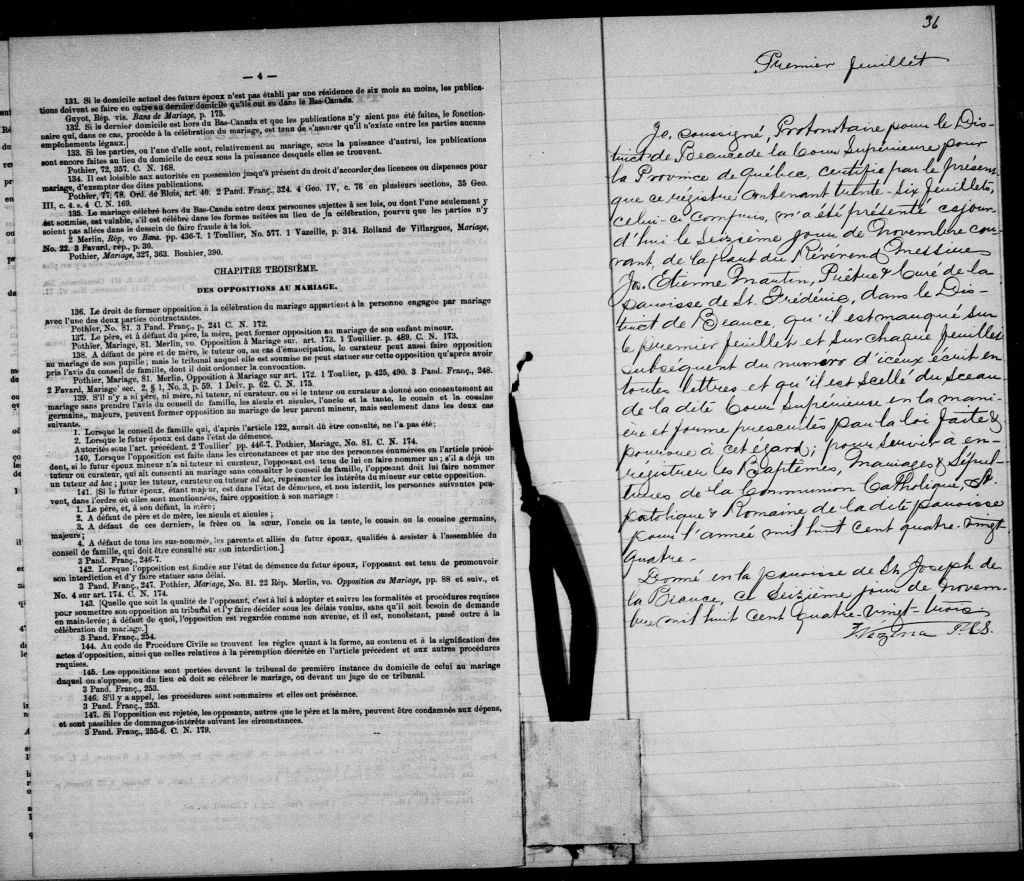 — 4 —
131. Si le domicile actuel des futurs époux n'est pas établi par une résidence de six mois au moins, les publica-
tions doivent se faire en outre au dernier domicile qu'ils ont eu dans le Bas-Canada.
Guyot, Rép. vis. Bans de Mariage, p. 175.
132. Si le dernier domicile est hors du Bas-Canada et que les publications n'y aient pas été faites, le fonction-
naire qui, dans ce cas, procède à la célébration du mariage, est tenu de s'assurer qu'il n'existe entre les parties aucuns
empêchements légaux.]
133. Si les parties, ou l'une d'elle sont, relativement au mariage, sous la puissance d'autrui, les publications
sont encore faites au lieu du domicile de ceux sous la puissance desquels elles se trouvent.
Pothier, 72, 357. C. N. 168.
134. Il est loisible aux autorités en possession jusqu'à présent du droit d'accorder des licences ou dispenses pour
mariage, d'exempter des dites publications.
Pothier, 77, 78. Ord. de Blois, art. 40. 2 Pand. Franç., 324. 4 Geo. IV, c. 76 en plusieurs sections, 35 Geo.
III, c. 4. s. 4 C. N. 169.
135. Le mariage célébré hors du Bas-Canda entre deux personnes sujettes à ses lois, ou dont l'une seulement y
est soumise, est valable, s'il est célébré dans les formes usitées au lieu de la célébration, pourvu que les parties n'y
soient pas allées dans le dessein de faire fraude à la loi.
2 Merlin, Rép, vo Bans. pp. 436-7. 1 Toullier, No. 577. 1 Vazeille, p. 314. Rolland de Villargues, Mariage,
No. 22. 3 Favard, rép., p. 30.
Pothier, Mariage, 327, 363. Bouhier, 390.
CHAPITRE TROISIÈME.
DES OPPOSITIONS AU MARIAGE.
136. Le droit de former opposition à la célébration du mariage appartient à la personne engagée par mariage
avec l'une des deux parties contractantes.
Pothier, No. 81. 3 Pand. Franç., p. 241 C. N. 172.
137. Le père, et à défaut du père, la mère, peut former opposition au mariage de son enfant mineur.
Pothier, Mariage, 81. Merlin, vo. Opposition à Mariage sur. art. 173. 1 Touillier. p. 489. C. N. 173.
138. A défaut de père et de mère, le tuteur ou, au cas d'émancipation, le curateur peut aussi faire opposition
au mariage de son pupille; mais le tribunal auquel elle est soumise ne peut statuer sur cette opposition qu'après avoir
pris l'avis du conseil de famille, dont il doit ordonner la convocation.
Pothier, Mariage, 81. Merlin, Opposition à Mariage sur art. 172. 1 Toulier, p. 425, 490. 3 Pand. Franç., 248.
2 Favard, Mariage' sec. 2, § 1, No. 3, p. 59. 1 Delv. p. 62. C. N. 175.
139. S'il n'y a ni père, ni mère, ni tuteur, ni curateur, ou si le tuteur ou curateur a donné son consentement au
mariage sans prendre l'avis du conseil de famille, les aïeuls et aïeules, l'oncle et la tante, le cousin et la cousine
germains, majeurs, peuvent former opposition au mariage de leur parent mineur, mais seulement dans les deux cas
suivants.
1. Lorsque le conseil de famille qui, d'après l'article 122, aurait dû être consulté, ne l'a pas été;
2. Lorsque le futur époux est dans l'état de démence.
Autorités sous l'art. précédent. 2 Toullier' pp. 446-7. Pothier, Mariage, No. 81. C. N. 174.
140, Lorsque l'opposition est faite dans les circonstances et par une des personnes énumérées en l'article précé-
dent, si le futur époux mineur n'a ni tuteur ni curateur, l'opposant est tenu de lui en faire nommer un; s'il a déjà un
tuteur ou curateur, qui ait consenti au mariage sans consulter le conseil de famille, l'opposant doit lui faire nommer
un tuteur ad hoc; pour les tuteur, curateur ou tuteur ad hoc, représenter les intérêts du mineur sur cette opposition.
141. [Si le futur époux, étant majeur, est dans l'état de démence, et non interdit, les personnes suivantes peu-
vent, dans l'ordre où elles sont mentionnées, faire opposition à son mariage :
1. Le père, et, à son défaut, la mère;
2. A défaut de père et de mère, les aieuls et aieules;
3. A défaut de ces derniers, le frère ou la sœur, l'oncle ou la tente, le cousin ou la cousine germains,
majeurs;
4. A défaut de tous les sus-nommés, les parents et alliés du futur époux, qualifiés à assister à l'assemblée du
conseil de famille, qui doit être consulté sur son interdiction.]
3 Pand. Franç., 246-7.
142. Lorsque l'opposition est fondée sur l'état de démence du futur époux, l'opposant est tenu de promouvoir
son interdiction et d'y faire statuer sans délai.
3 Pand. Franç., 247. Pothier, Mariage, No. 81. 22 Rép. Merlin, vo. Opposition au Mariage, pp. 88 et suiv., et
No. 4 sur art. 174. C. N. 174.
143. [Quelle que soit la qualité de l'opposant, c'est à lui à adopter et suivre les formalités et procédures requises
pour soumettre son opposition au tribunal et l'y faire décider sous les délais voulus, sans qu'il soit besoin de demande
en main-levée; à défaut de quoi, l'opposition est regardée comme non avenue, et il est, nonobstant, passé outre à la
célébration du mariage.]
3 Pand. Franç., 254.
144. Au code de Procédure Civile se trouvent les règles quant à la forme, au contenu et à la signification des
actes d'opposition, ainsi que celles relatives à la péremption décrétée en l'article précédent et aux autres procédures
requises.
145. Les oppositions sont portées devant le tribunal de première instance du domicile de celui au mariage
duquel on s'oppose, ou du lieu où doit se célébrer le mariage, ou devant un juge de ce tribunal.
3 Pand. Franç., 253.
146. S'il y a appel, les procédures sont sommaires et elles ont préséance.
3 Pand. Franç., 253.
147. Si l'opposition est rejetée, les opposants, autres que le père et la mère, peuvent être condamnés aux dépens,
et sont passibles de dommages-intérêts suivant les circonstances.
3 Pand. Franç., 255-6. C. N. 179.
36
Premier feuillet
Je, soussigné, Protonotaire pour le Dis-
trict de Beauce de la Cour Supérieure pour
la Province de Québec, certifie par le présent
que ce régistre contenant trente-six feuillets,
celui-ci compris, m'a été présenté ce jour-
d'hui le seizième jour de Novembre cou-
rant, de la part du Révérend Messire
Jos. Etienne Martin, Prêtre & Curé de la
paroisse de St Frédéric, dans le Dis-
trict de Beauce, qu'il est marqué sur
le premier feuillet et sur chaque feuillet
subséquent du numéro d'iceux écrit en
toutes lettres et qu'il est scellé du sceau
de la dite Cour Supérieure en la mani-
ère et forme prescrites par la loi faite &
pourvue à cet égard; pour servir à en-
registrer les Baptêmes, Mariages & Sépul-
tures de la Communion Catholique, A
postolique & Romaine de la dite paroisse
pour l'année mil huit cent quatre-vingt-
quatre.
Donné en la paroisse de St Joseph de
la Beauce, ce seizième jour de Novem-
bre mil huit cent quatre-vingt-trois
Vézina P.C.S.